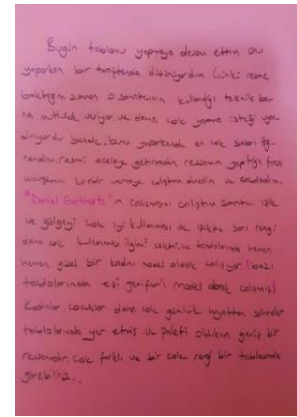 Bugün tablomu yapmaya devam ettim Onu
yaparken bir taraftanda düşünüyordum. Çünkü resme
baktığım zaman o sanatçının kullandığı teknik ba-
na mutluluk veriyor ve daha çok yapma isteği uyan-
dırıyordu bunu yaparkende en çok sabrı öğ-
rendim, resmi aceleye getirmeden ressamın yaptığı fırça
vuruşlarını vermeye çalıştım
"Daniel Gerhartz" 'ın çalışmasını çalıştım Sanatçı ışık
ve gölgeyi çok iyi kullanması ve ışıkta sarı rengi
daha çok kullanması ilgimi çekti. ve tablolarında hemen
hemen güzel bir kadını model alarak çalışıyor (bazı
tablolarındada eşi Jenifer'i model alarak çalışmış)
Kadınlar, çocuklar daha çok günlük hayattan sahneler
tablolarında yer etmiş. ve paleti oldukça geniş bir
ressamdır, çok farklı ve bir çok rengi bir tablosunda
görebiliriz..